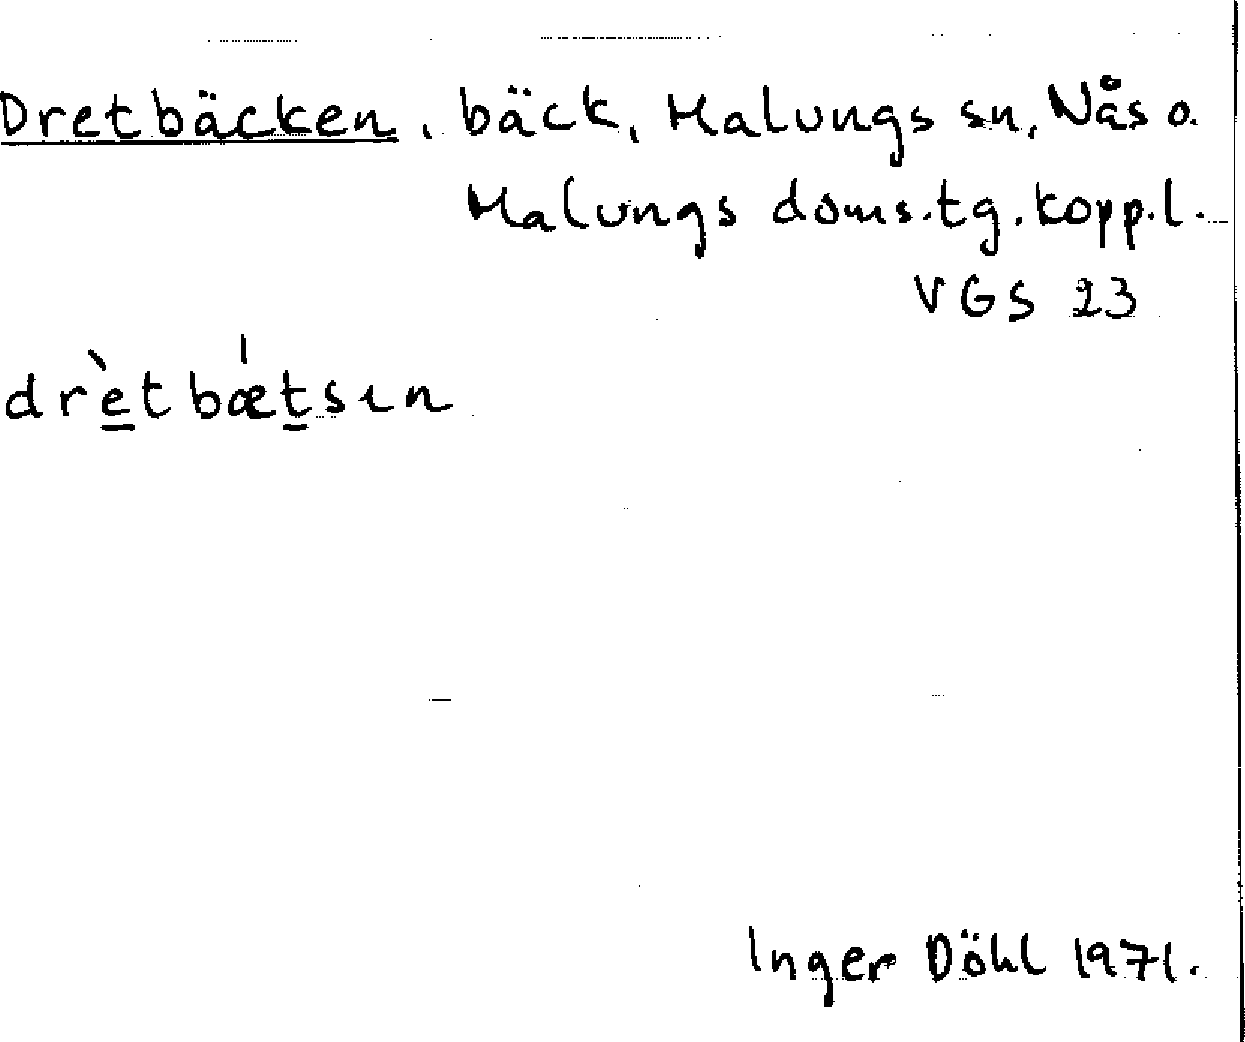 Dretbäcken, bäck, Malungs sn, Nås o.
Malungs doms.tg. kopp.l.
VGS 23
drè̲tbǽt̲sın
Inger Döhl 1971.